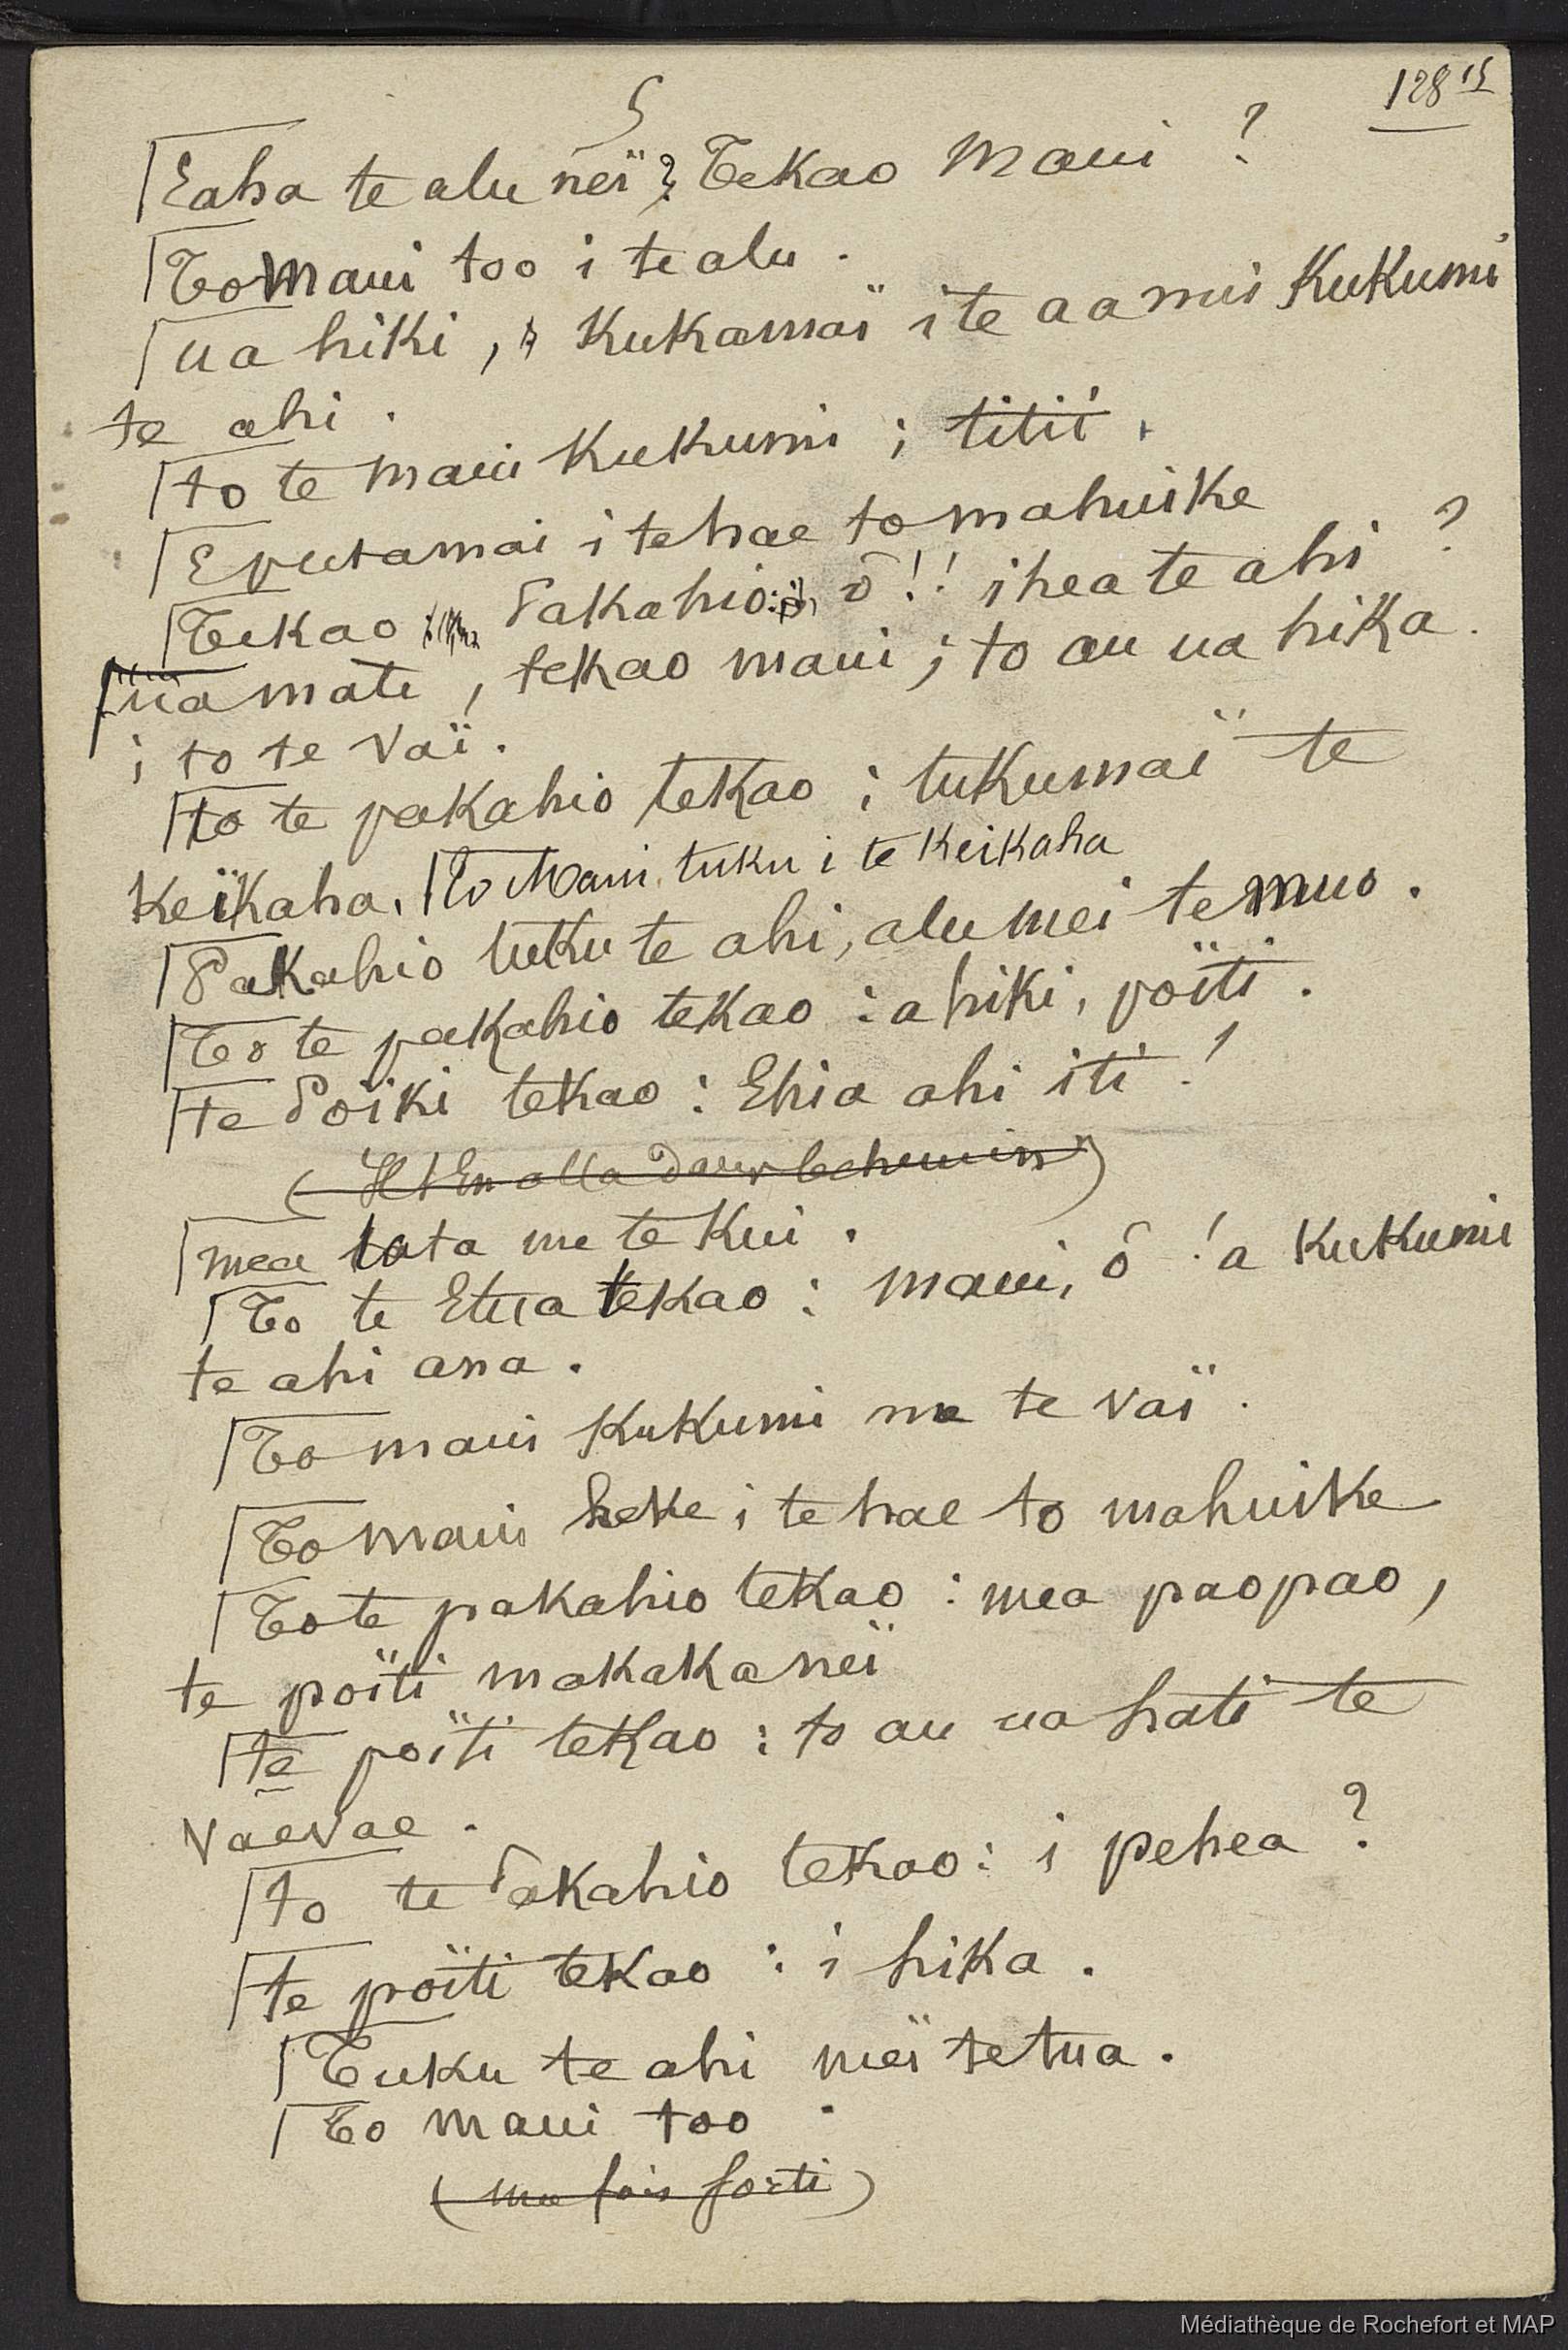 128 15
5
Eaha te alu neï ? Tekao Maui ?
To Maui too i te alu .
ua hiki , Kukamaï i te aa mui Kukumi
te ahi .
to te maui Kukumi ; titii .
Eputamai i te hae to mahuike
Tekao Pakahio ō !! ihea te ahi ?
ua mate , tekao maui ; to au ua hika .
i to te vaï .
to te pakahio tekao ; tukumaï te
Keïkaha . To Maui tuku i te Keikaha
Pakahio tuku te ahi, alu mei te muo .
To te pakahio tekao : a hiki, poïti .
te Poiki tekao : Ehia ahi iti !
(Il S'En alla dans le chemin)
mea tata me te Kui .
To te Etua tekao : maui, ô ! a Kukumi
te ahi ana .
To maui Kukumi me te vaï .
To maui heke i te hae to mahuike
To te pakahio tekao : mea paopao ,
te poïti makaka neï
te poïti tekao : to au ua hati te
vaevae .
to te Pakahio tekao : i pehea ?
te poïti tekao : i hika .
Tuku te ahi meï te tua .
To maui too .
(une fois sorti)
Médiathèque de Rochefort et MAP